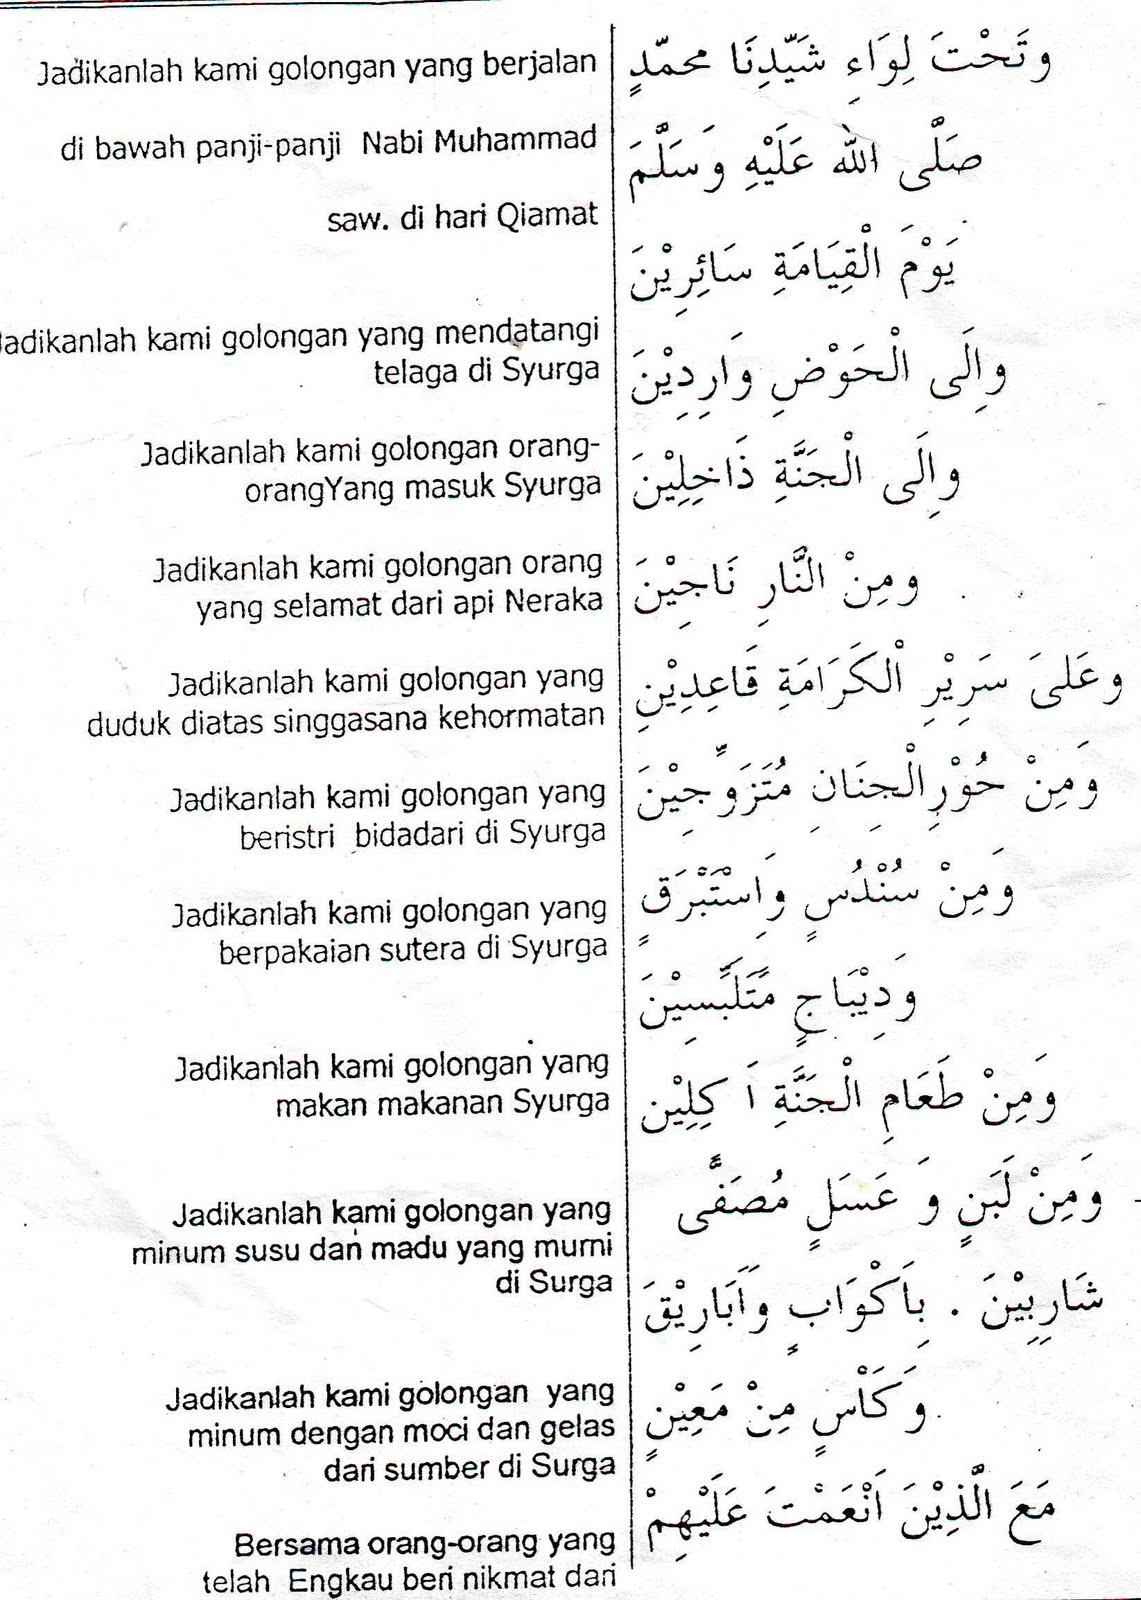 Jadikanlah kami golongan yang berjalan
di bawah panji-panji Nabi Muhammad
saw. di hari Qiamat
Jadikanlah kami golongan yang mendatangi
telaga di Syurga
Jadikanlah kami golongan orang-
orangYang masuk Syurga
Jadikanlah kami golongan orang
yang selamat dari api Neraka
Jadikanlah kami golongan yang
duduk diatas singgasana kehormatan
Jadikanlah kami golongan yang
beristri bidadari di Syurga
Jadikanlah kami golongan yang
berpakaian sutera di Syurga
Jadikanlah kami golongan yang
makan makanan Syurga
Jadikanlah kami golongan yang
minum susu dan madu yang murni
di Surga
Jadikanlah kami golongan yang
minum dengan moci dan gelas
dari sumber di Surga
Bersama orang-orang yang
telah Engkau beri nikmat dari
وَتَحْتَ لِوَاءِ شَيِّدِنَا محمّدٍ
صَلَّى الله عَلَيْهِ وَسَلَّمَ
يَوْمَ الْقِيَامَةِ سَائِرِيْنَ
وِالَى الْحَوْضِ وَارِدِيْنَ
وِالَى الْجَنَّةِ ذَاخِلِيْنَ
ومِنْ النَّارِ نَاجِيْنَ
وعَلىَ سَرِيْرِ اْلكَرَامَةِ قَاعِدِيْنِ
وَمِنْ حُوْرِالْجِنَانِ مُتَزَوِّجِيْنَ
وَمِنْ سُنْدُسٍ وَاِسْتَبْرَقٍ
وَدِيْبَاجٍ مَّتَلَبِّسِيْنَ
وَمِنْ طَعَامِ الْجَنَّةِ اَ كِلِيْن
وَمِنْ لَبَنٍ وَ عَسَلٍ مُصَفَّى
شَارِبِيْنَ . بِاَكْوَابٍ وَاَبَارِيْقَ
وَكَاْسٍ مِنْ مَعِيْنٍ
مَعَ الَّذِيْنَ اَنْعَمْتَ عَلَيْهِمْ